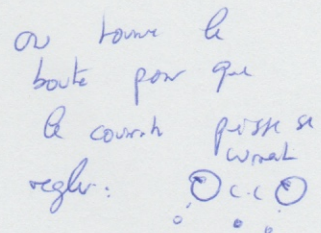 on tourne le
boute pour que
le courant puisse se
regler.